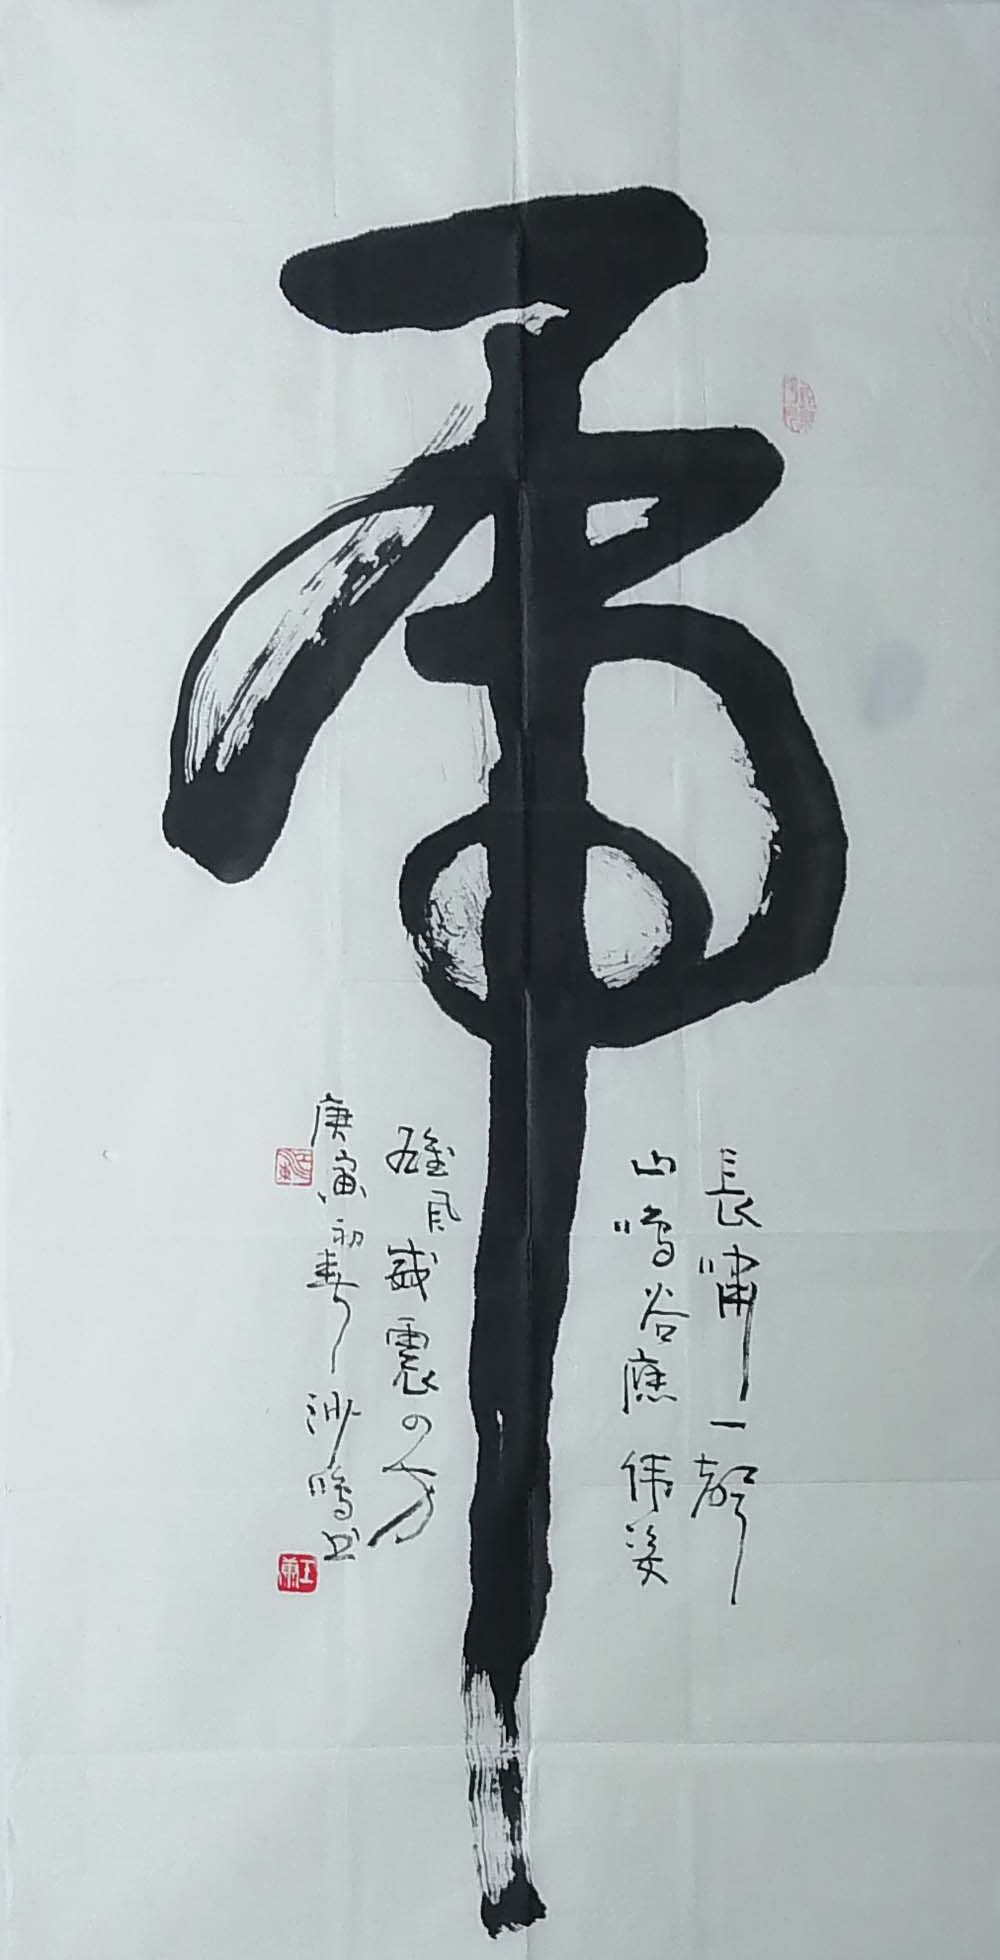 虎
長嘯一聲
山鳴谷應 伟姿
雄風威震四方
庚寅初春 沙鳴书